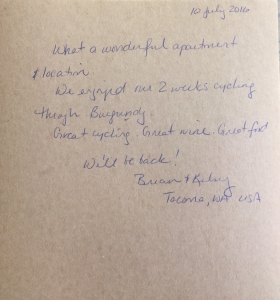 10 July 2016
What a wonderful apartment
& location
We enjoyed our 2 weeks cycling
through Burgundy.
Great cycling. Great wine. Great food
We'll be back!
Brian +
Tacoma, WA USA